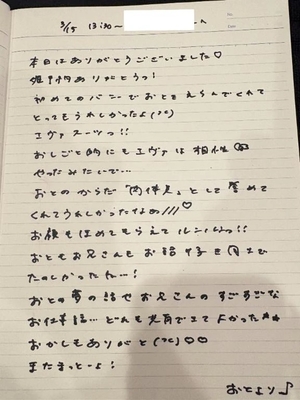 3/15 13:30〜 へ
本日はありがとうございました♡
初めてのバニーでおとをえらんでくれて
とってもうれしかったよ
エヴァスーツっ!!
おしごと的にもエヴァは相性
やったみたいで…
おとのからだ「肉体美」として誉めて
くれてうれしかったなぁ///♡
お顔もほめてもらえてルンルンっ!!
おともお兄さんもお話
たのしかったね〜!
おとの夢の話やお兄さんのすごすごな
お仕事話…どんも共有できてよかった
おかしもありがと ♡♡
またきっとーよ!
おとより♪